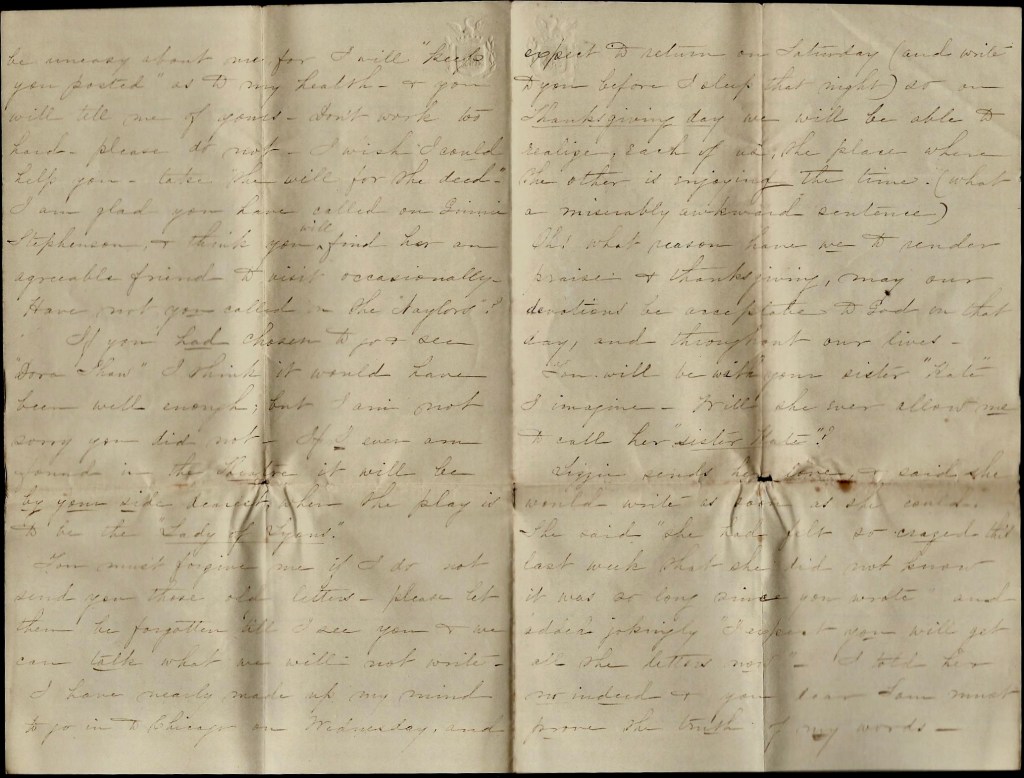 be uneasy about me for I will "keep
you posted" as to my health - & you
will tell me of yours - Don't work too
hard - please do not - I wish I could
help you - take "the will for the deed"
I am glad you have called on
Stephenson, & think you will find her an
agreeable friend to visit occasionally -
Have not you called on the "Naylors"?
If you had chosen to go & see
"Dora Shaw" I think it would have
been well enough, but I am not
sorry you did not - If I ever am
found in the Theatre it will be
by your side dearest, when the play is
to be the "Lady of Lyons".
You must forgive me if I do not
send you those old letters - please let
them be forgotten till I see you & we
can talk what we will not write -
I have nearly made up my mind
to go in to Chicago on Wednesday, and
expect to return on Saturday (and write
to you before I sleep that night) so on
Thanksgiving day we will be able to
realize, each of us, the place where
the other is enjoying the time. (what
a miserably awkward sentence)
Oh! what reason have we to render
praise & thanksgiving, may our
devotions be acceptable to God on that
day, and throughout our lives -
You will be with your sister "Kate"
I imagine - Will she ever allow me
to call her "sister Kate"?
Lizzie sends her love, & said she
would write as soon as she could.
She said "she had felt so crazed this
last week that she did not know
it was so long since you wrote" and
added jokingly "I expect you will get
all the letters now" - I told her
no indeed & you dear Sam must
prove the truth of my words -